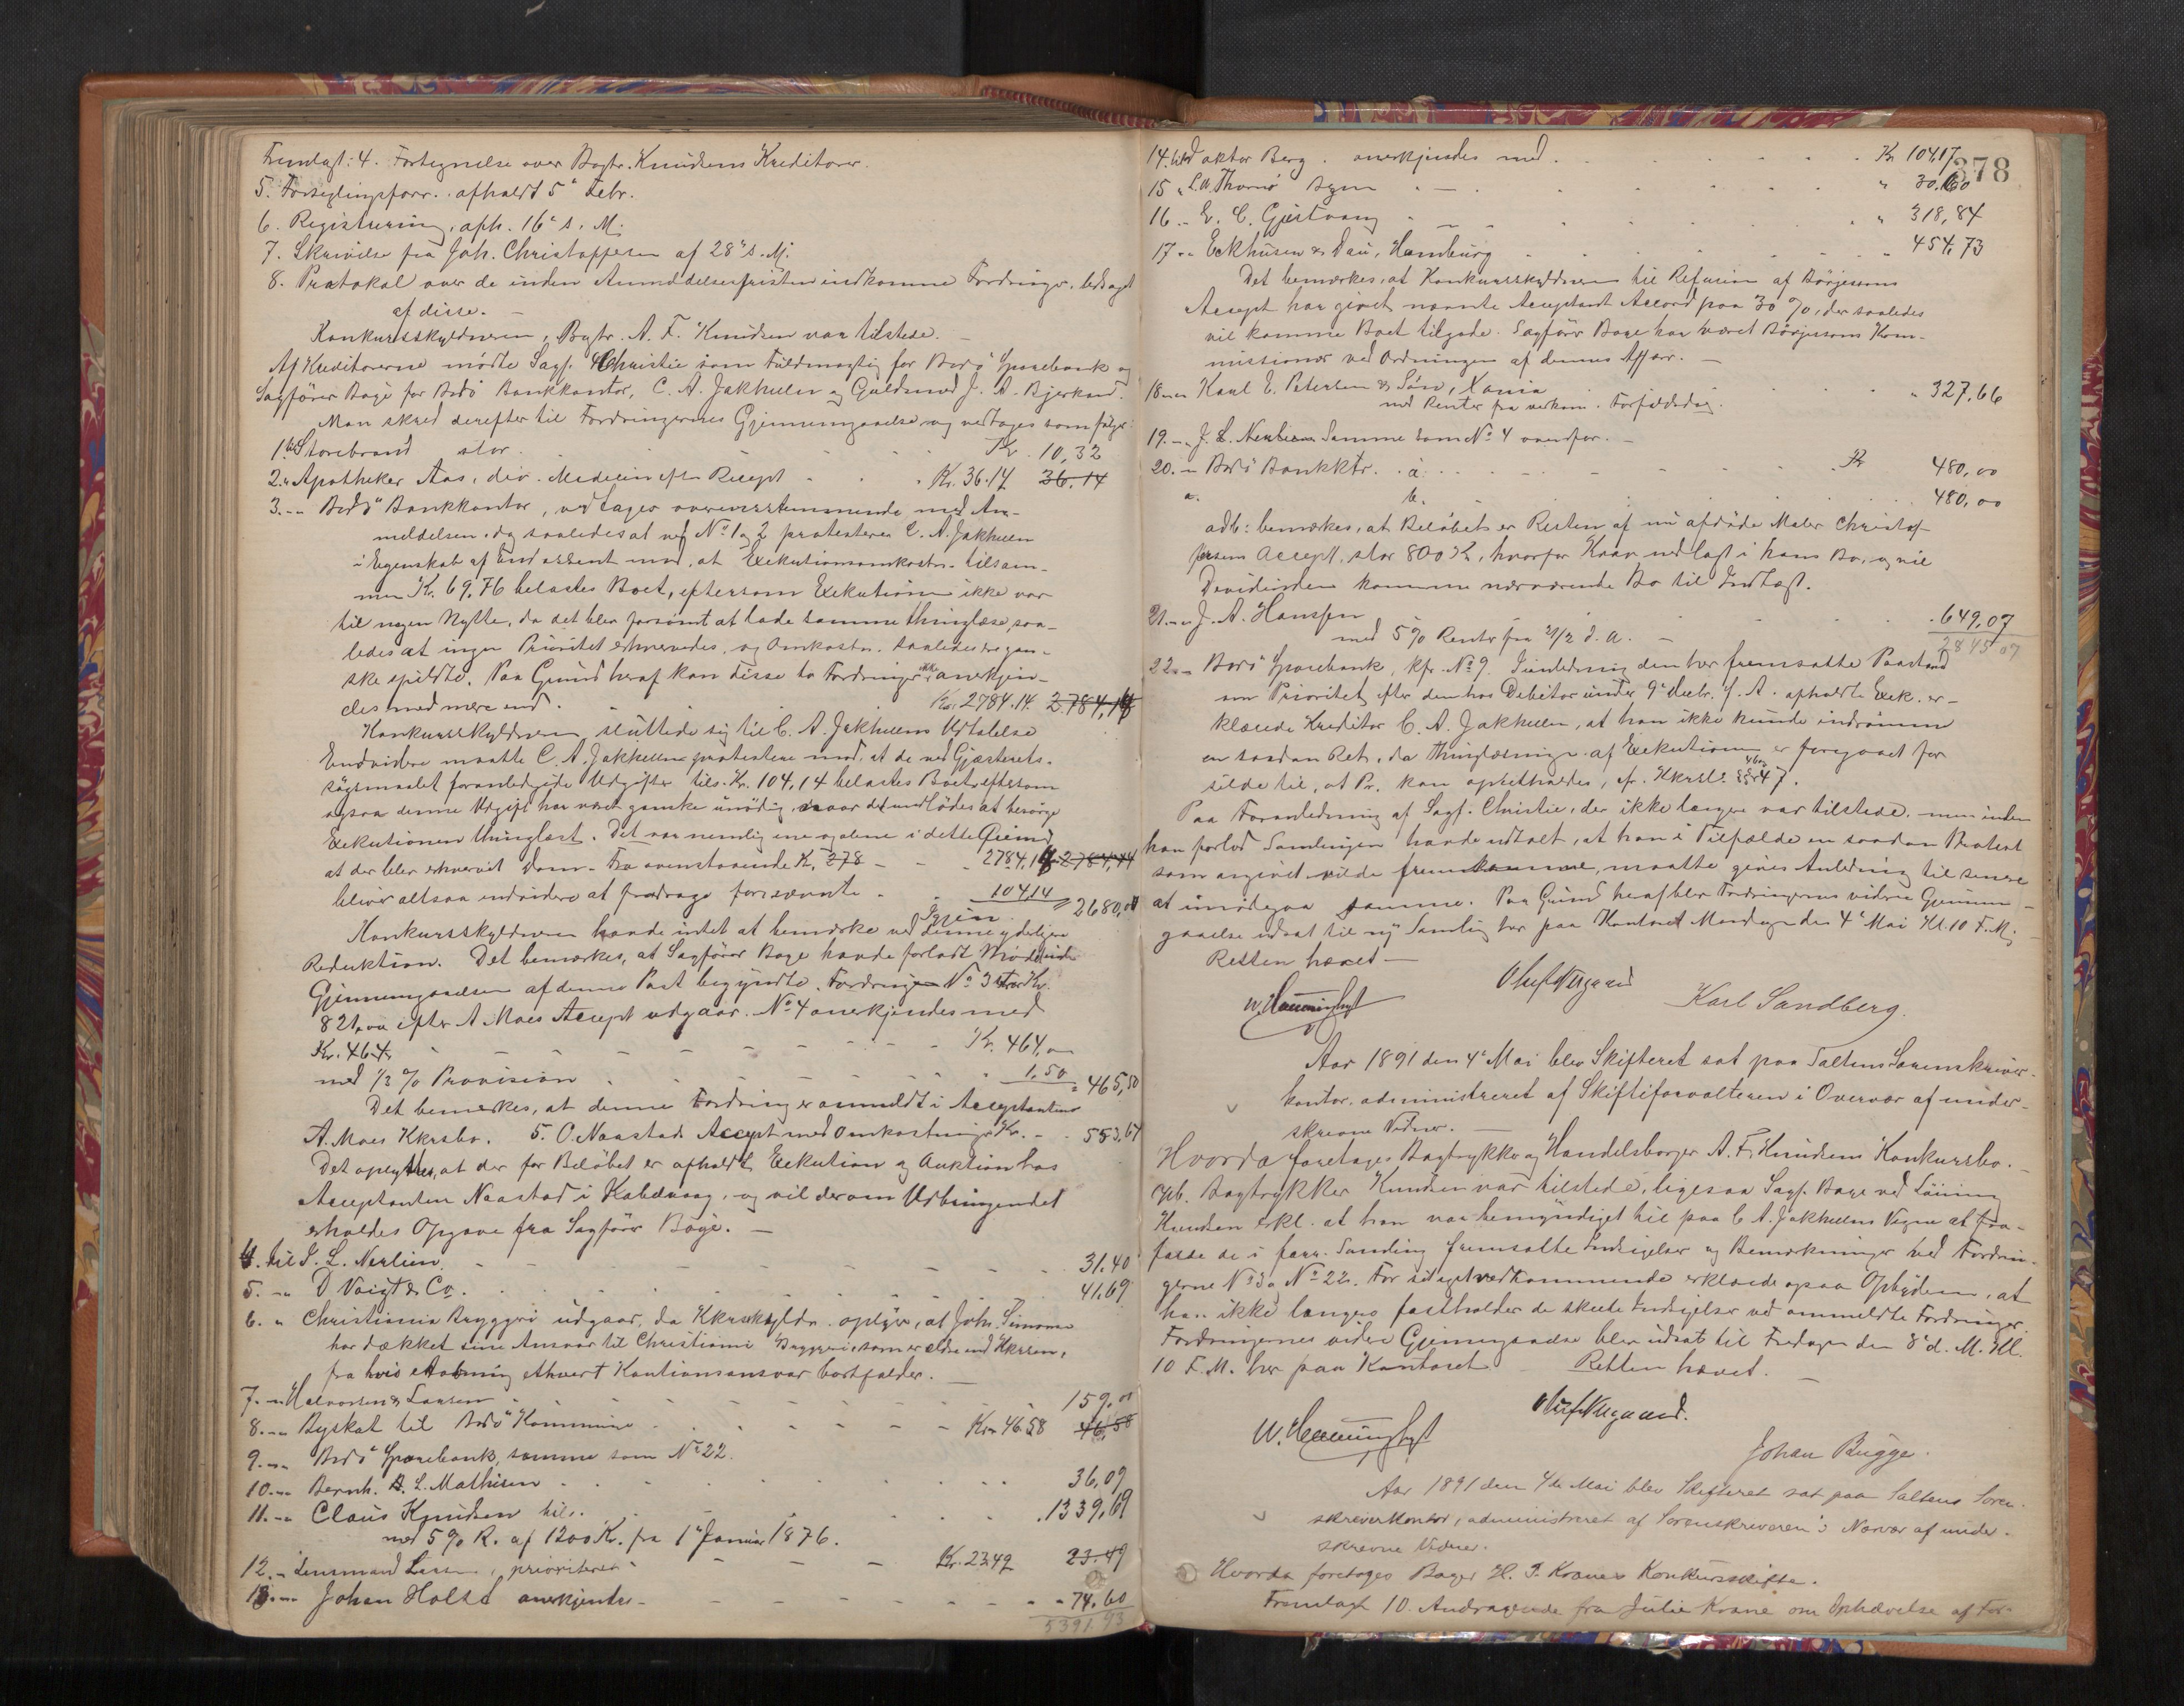 Fremlagt: 4. Fortegnelse over Bogtr. Knudsens Kreditorer.
5. Forseglingsforr. afholdt 5te Febr.
6. Registrering, afh. 16de s. M.
7. Skrivelse fra Joh. Christoffersen af 28de s. M.
8. Protokol over de inden Anmeldelsesfristen indkomne Fordringer, ledsaget
af disse. –
Konkursskyldneren, Bogtr. A. F. Knudsen var tilstede. –
Af Kreditorerne mødte Sagf. Christie som Fuldmægtig for Bodø Sparebank og
Sagfører Bage for Bodø Bankkontor, C. A. Jakhelln og Guldsmed J. A. Bjerkand.
Man skred derefter til Fordringernes Gjennemgaaelse og vedtoges som følger:
1. til Storebrand stor. Kr. 10,32
2. " Apotheker Aas, div. Medicin efter Recept Kr. 36.14 36.14
3. – " Bodø Bankkontor, vedtages overensstemmende med An-
meldelsen, dog saaledes at ved No 1 og 2 protesterer C. A. Jakhelln
i Egenskab af Endossent mod, at Exekutionsomkostn. tilsam-
men Kr. 69,76 belastes Boet, eftersom Exekutionen ikke var
til nogen Nytte, da det blev forsømt at lade samme thinglæse, saa-
ledes at ingen Prioritet erhvervedes, og Omkostn. saaledes ere gan-
ske spildte. Paa Grund heraf kan disse to Fordringer ikke anerkjen-
des med mere end. Kr. 2784.14. 2784,14
Konkursskyldneren sluttede sig til C. A. Jakhellns Udtalelse
Endvidere maatte C. A. Jakhelln protestere mod, at de ved Gjæsterets-
søgsmaalet foranledigede Udgifter tils. Kr. 104,14 belastes Boet, eftersom
ogsaa denne Udgift har været ganske unødig, naar det undlodes at besørge
Exekutionen thinglæst. Det var nemlig ene og alene i dette Øiemed,
at der blev erhvervet Dom. Fra ovenstaaende Kr. 278 – – 2784,14 2784,14
bliver altsaa endvidere at fradrage forrnævnte – 104,14 = 2680,00
Konkursskyldneren havde intet at bemærke ved denne yderligere
Reduktion. Det bemærkes, at Sagfører Bage havde forladt Mødet inden
Gjennemgaaelsen af denne Post begyndte. Fordringen No 3 stor Kr.
821,00 efter A. Moes Accept udgaar. No 4 anerkjendes med
Kr. 464, – – – – Kr. 464,00
med 1/3 % Provision 1,50 = 465,50
Det bemærkes, at denne Fordring er anmeldt i Acceptanten
A. Moes Kkrsbo. 5. O. Naastads Accept med Omkostninger Kr. – 553,64
Det oplystes, at der for Beløbet er afholdt Exekution og Auktion hos
Acceptanten Naastad i Kabelvaag, og vil der om Udbringendet
erholdes Opgave fra Sagfører Bage. –
4. til J. L. Nerlien. 31.40
5. – " D Voigt & Co. 41,69
6. " Christiania Bryggeri udgaar, da Kkrsskyldn. oplyser, at Joh. Simonsen
har dækket sine Ansvar til Christiania Bryggeri, som er ældre end Kkrsen,
fra hvis Aabning ethvert Kautionsansvar bortfalder. –
7. – " Halvorsen & Larsen 159,00
8. – " Byskat til Bodø Kommune Kr. 46.58 46,58
9. – " Bodø Sparebank, samme som No 22.
10. – " Bernh. B. L. Mathisen 36,09
11. – " Claus Knudsen tils. 1339,69
med 5 % R. af 1200 Kr. fra 1ste Januar 1876.
12. – " Lensmand , prioriteret Kr. 23.49 23.49
13. – " Johan Holst anerkjendes – 74.60
5391.93
378
14. til Doktor Berg. anerkjendes med Kr 104,17
15 " L. A. Thornø " 30.60
16. – " E. C. Gjestvang " 318,84
17 – " Eckhusen & Dau, Hamburg " 454,73
Det bemærkes, at Konkursskyldneren til Refusion af Børjesons
Accept har givet nævnte Acceptant Accord paa 30 %, der saaledes
vil komme Boet tilgode. Sagfører Bage har været Børjesons Kom-
missionær ved Ordningen af dennes Affære. –
18 – " Karl E. Petersen & Søn, Xania " 327,66
med Renter fra vedkom. Forfaldsdag.
19. – " J. L. Nerlien Samme som No 4 ovenfor. –
20. – " Bodø Bankktr. a. Kr 480,00
" b. 480,00
adb: bemærkes, at Beløbet er Resten af nu afdøde Maler Christof-
fersens Accept, stor 800 Kr, hvorfor Krav nedlagt i hans Bo, og vil
Dividenden komme nærværende Bo til Indtægt.
21. – " J. A. Hanssen 649,07
med 5 % Renter fra 21/2 d. A. –
2845 07
22. – " Bodø Sparebank, kfr. No 9. I Anledning den her fremsatte Paastand
om Prioritet efter den hos Debitor under 9de Decbr. f. A. afholdte Exek. er-
klærede Kreditor C. A. Jakhelln, at han ikke kunde indrømme
en saadan Ret, da thinglæsninger af Exekutionen er foregaaet for
silde til, at Pr. kan opretholdes, cfr. Kkrsl. §§ 46 og 47.
Paa Foranledning af Sagf. Christie, der ikke længere var tilstede, men inden
han forlod Samlingen havde udtalt, at han i Tilfælde en saadan Protest
som angivet vilde fremkomme, maatte gives Anledning til senere
at imødegaa samme. Paa Grund heraf blev Fordringernes videre Gjennem-
gaaelse udsat til ny Samling her paa Kontoret Mandagen den 4de Mai Kl. 10 F. M.
Retten hævet –
Karl Sandberg.
Aar 1891 den 4de Mai blev Skifteret sat paa Saltens Sorenskriver-
kontor, administreret af Skifteforvalteren i Overvær af under-
skrevne Vidner. –
Hvorda foretoges Bogtrykker og Handelsborger A. F. Knudsens Konkursbo. –
Opb. Bogtrykker Knudsen var tilstede, ligesaa Sagf. Bage ved Lønning
Knudsen erkl. at han var bemyndiget til paa C. A. Jakhellns Vegne at fra-
falde de i forr. Samling fremsatte Indsigelser og Bemærkninger ved Fordrin-
gerne No 3 og No 22. For sit eget vedkommende erklærede ogsaa Opbyderen, at
han ikke længere fastholder de skete Indsigelser ved anmeldte Fordringer.
Fordringernes videre Gjennemgaaelse blev udsat til Fredagen den 8de d. M. Kl.
10 F. M. her paa Kontoret – Retten hævet. –
Johan Bugge.
Aar 1891 den 4de Mai blev Skifteret sat paa Saltens Soren-
skriverkontor, administreret af Sorenskriveren i Nærvær af under-
skrevne Vidner.
Hvorda foretoges Bager H. P. Kranes Konkursskifte.
Fremlagt 10. Andragende fra Julie Krane om Ophævelse af For-